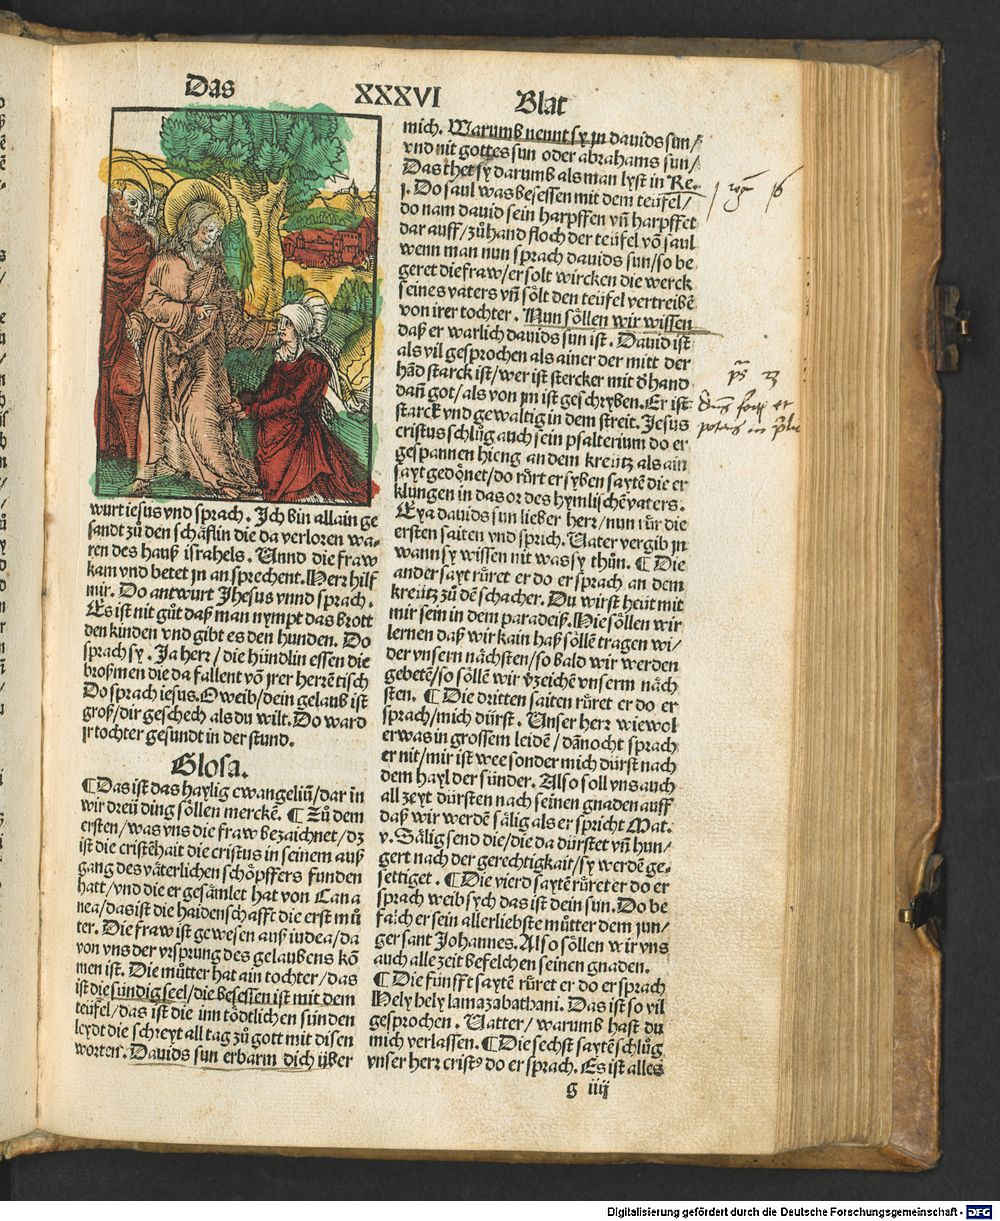 Das XXXVI Blat
wurt iesus vnd sprach. Ich bin allain ge
sandt zů den schäflin die da verloren wa-
ren des hauß israhels. Vnnd die fraw
kam vnd betet jn an sprechent. Herr hilf
mir. Do antwurt Jhesus vnnd sprach.
Es ist nit gůt daß man nympt das brott
den kinden vnd gibt es den hunden. Do
sprach sy. Ja herr/ die hündlin essen die
broßmen die da fallent võ jrer herrẽ tisch
Do sprach iesus. O weib/ dein gelaub ist
groß/ dir geschech als du wilt. Do ward
jr tochter gesundt in der stund.
Glosa.
¶ Das ist das haylig ewangeliũ/ dar in
wir dreü ding söllen merckẽ. ¶ Zů dem
ersten/ was vns die fraw bezaichnet/ dz
ist die cristẽhait die cristus in seinem auß
gang des väterlichen schöpffers funden
hatt/ vnd die er gesämlet hat von Cana
nea/ das ist die haidenschafft die erst mů
ter. Die fraw ist gewesen auß iudea/ da
von vns der vrsprung des gelaubens kõ
men ist. Die můtter hat ain tochter/ das
ist die sündig seel/ die besessen ist mit dem
teüfel/ das ist die inn tödtlichen sünden
leydt die schreyt all tag zů gott mit disen
worten. Dauids sun erbarm dich über
mich. Warumb nennt sy jn dauids sun/
vnd nit gottes sun oder abrahams sun/
Das thet sy darumb als man lyst in Re-
j. Do saul was besessen mit dem teüfel/
do nam dauid sein harpffen vñ harpffet
dar auff/ zůhand floch der teüfel võ saul
wenn man nun sprach dauids sun/ so be
geret die fraw/ er solt wircken die werck
seines vaters vñ sölt den teüfel vertreibẽ
von irer tochter. Nun söllen wir wissen
daß er warlich dauids sun ist. Dauid ist
als vil gesprochen als ainer der mitt der
hãd starck ist/ wer ist stercker mit d̕ hand
dañ got/ als von jm ist geschryben. Er ist
starck vnd gewaltig in dem streit. Jesus
cristus schlůg auch sein psalterium do er
gespannen hieng an dem kreütz als ain
sayt gedönet/ do rürt er syben saytẽ die er
klungen in das or des hymlischẽ vaters.
Eya dauids sun lieber herr/ nun rür die
ersten saiten vnd sprich. Vater vergib jn
wann sy wissen nit was sy thůn. ¶ Die
ander sayt rüret er do er sprach an dem
kreütz zů dẽ schacher. Du wirst heüt mit
mir sein in dem paradeiß. Hie söllen wir
lernen daß wir kain haß söllẽ tragen wi/
der vnsern nächsten/ so bald wir werden
gebetẽ/ so söllẽ wir v̕zeichẽ vnserm näch
sten. ¶ Die dritten saiten rüret er do er
sprach/ mich dürst. Vnser herr wiewol
er was in grossem leidẽ/ dãnocht sprach
er nit/ mir ist wee sonder mich dürst nach
dem hayl der sünder. Also soll vns auch
all zeyt dürsten nach seinen gnaden auff
daß wir werdẽ sälig als er spricht Mat.
v. Sälig send die/ die da dürstet vñ hun/
gert nach der gerechtigkait/ sy werdẽ ge-
settiget. ¶ Die vierd saytẽ rüret er do er
sprach weib sych das ist dein sun. Do be
falch er sein allerliebste můtter dem jun/
ger sant Johannes. Also söllen wir vns
auch alle zeit befelchen seinen gnaden.
¶ Die fünfft saytẽ rüret er do er sprach
Hely hely lamazabathani. Das ist so vil
gesprochen. Vatter/ warumb hast du
mich verlassen. ¶ Die sechst saytẽ schlůg
vnser herr crist9 do er sprach. Es ist alles
g iiij
16
ps 23
Digitalisierung gefördert durch die Deutsche Forschungsgemeinschaft - DFG